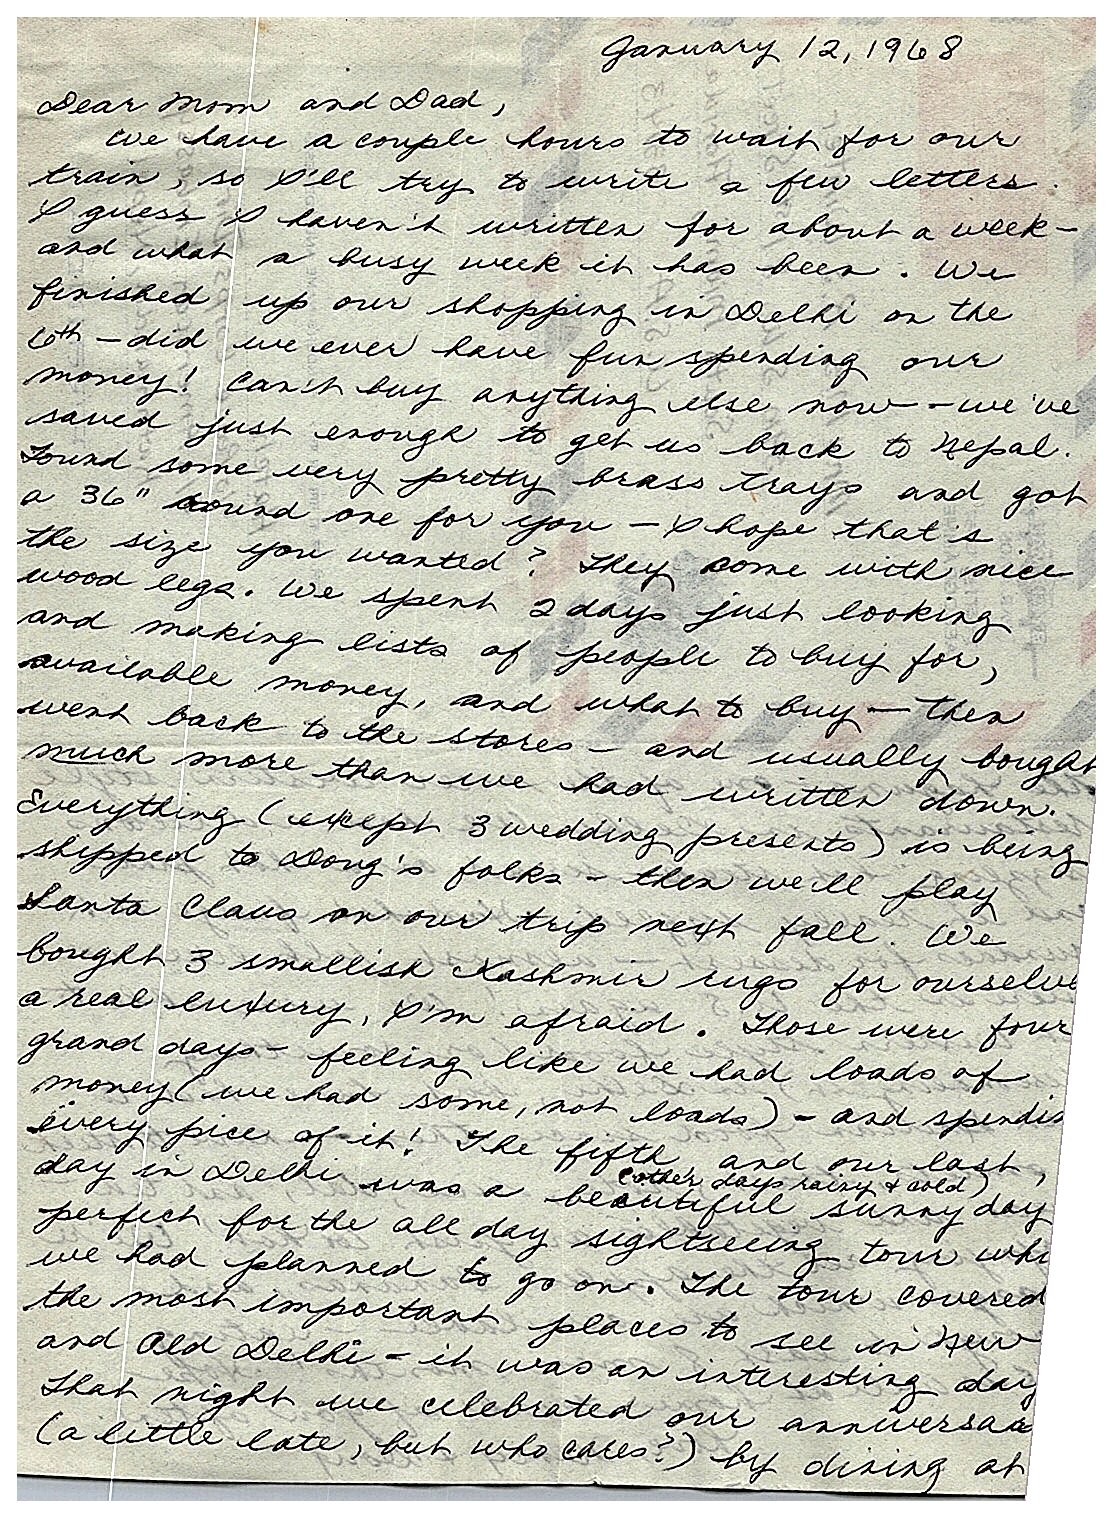 January 12, 1968
Dear Mom and Dad,
We have a couple hours to wait for our
train, so I'll try to write a few letters.
I guess I haven't written for about a week -
and what a busy week it has been. We
finished up our shopping in Delhi on the
6th - did we ever have fun spending our
money! Can't buy anything else now - we've
saved just enough to get us back to Nepal.
Found some very pretty brass trays and got
a 36" round one for you - I hope that's
the size you wanted? They come with nice
wood legs. We spent 2 days just looking
and making lists of people to buy for,
available money, and what to buy - then
went back to the stores - and usually bought
much more than we had written down.
Everything (except 3 wedding presents) is being
shipped to Doug's folks - then we'll play
Santa Claus on our trip next fall. We
bought 3 smallish Kashmir rugs for ourselve
a real luxury, I'm afraid. Those were four
grand days - feeling like we had loads of
money (we had some, not loads) - and spendin
every pice of it! The fifth, and our last,
day in Delhi was a beautiful sunny day
(other days rainy & cold)
perfect for the all day sightseeing tour whi
we had planned to go on. The tour covered
the most important places to see in New
and Old Delhi - it was an interesting day
That night we celebrated our anniversa
(a little late, but who cares?) by dining at